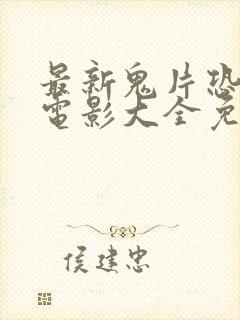 最新鬼片恐
電影大全免
侯建忠